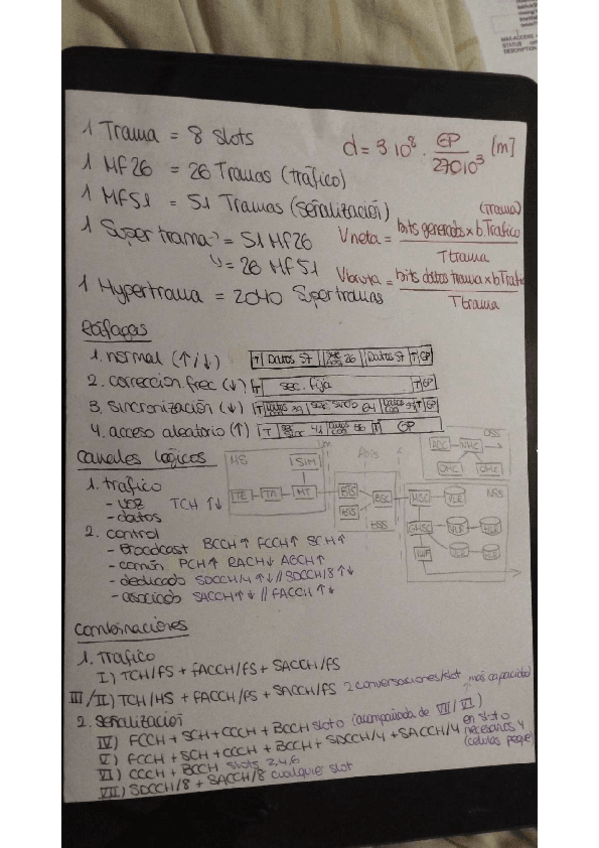 1 Trama = 8 slots
d = 3·10⁸ · GP / 270·10³ [m]
1 MF26 = 26 Tramas (tráfico)
1 MF51 = 51 Tramas (señalización)
1 Super trama = 51 MF26
" = 26 MF51
1 Hypertrama = 2040 Supertramas
(trama)
Vneta = bits generados x b Trafico / T trama
Vbruta = bits datos trama x b Traf / T trama
Ráfagas
1. normal (↑/↓) T | Datos 57 | 26 | Datos 57 | T | GP
2. corrección frec (↓) T | sec. fija | T | GP
3. sincronización (↓) T | 39 | 64 | 39 | T | GP
4. acceso aleatorio (↑) T | 41 | 36 | T | GP
Canales logicos
1. trafico
- voz
- datos
TCH ↑↓
2. control
- Broadcast BCCH↑ FCCH↑ SCH↑
- común PCH↑ RACH↓ AGCH↑
- dedicado SDCCH/4 ↑↓ // SDCCH/8 ↑↓
- asociado SACCH↑↓ // FACCH↑↓
MS
SIM
TE
TA
MT
Um
Abis
BTS
BTS
BSC
BSS
A
OSS
ADC
NMC
OMC
OMC
NSS
MSC
VLR
GMSC
IWF
Combinaciones
1. Trafico
I) TCH/FS + FACCH/FS + SACCH/FS
III/II) TCH/HS + FACCH/FS + SACCH/FS 2 conversaciones/slot, más capacidad
2. Señalizacion
IV) FCCH + SCH + CCCH + BCCH slot 0 (acompañada de VII/VI)
V) FCCH + SCH + CCCH + BCCH + SDCCH/4 + SACCH/4 en slot 0 necesarios 4 (celulas peque)
VI) CCCH + BCCH slots 2,4,6
VII) SDCCH/8 + SACCH/8 cualquier slot